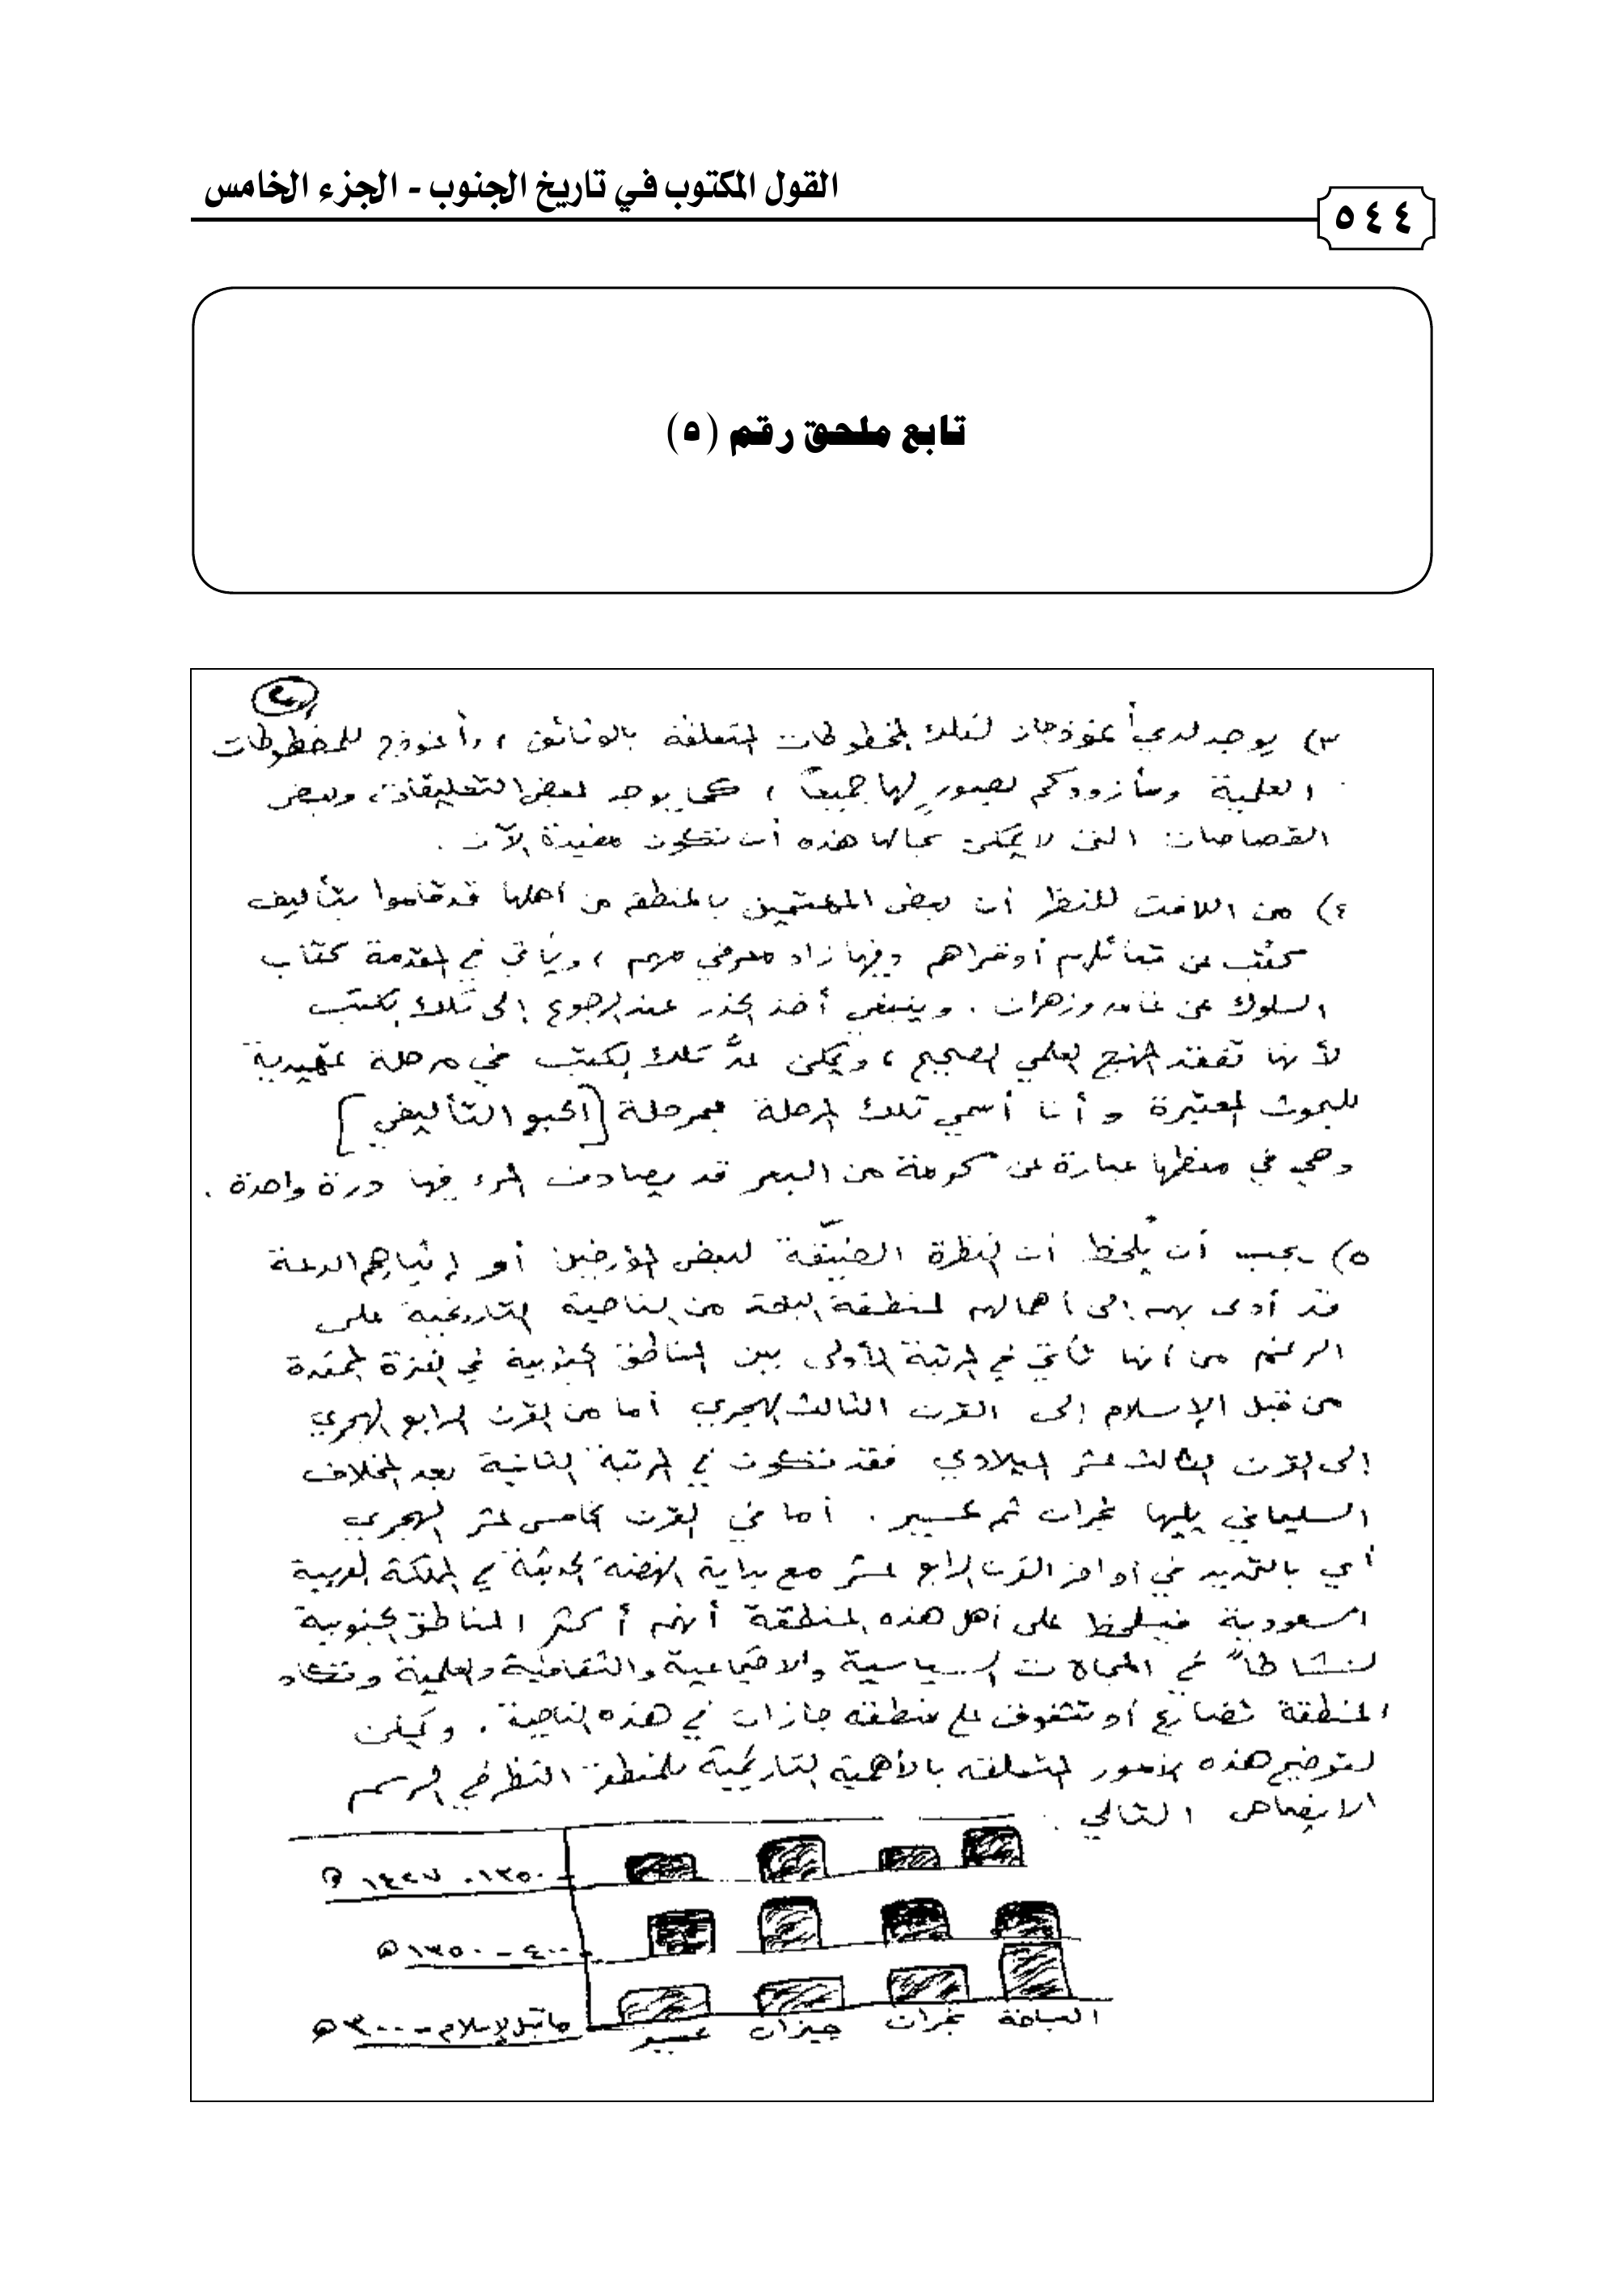 القول المكتوب في تاريخ الجنوب - الجزء الخامس
٥٤٤
تابع ملحق رقم (٥)
٣) يوجد لدي أنموذجان لتلك المخطوطات المتعلقة بالوثائق ، وأنموذج للمخطوطات
العلمية وسأزودكم بصورٍ لها جميعاً ، كما يوجد بعض التعليقات وبعض
القصاصات التي لا يمكن بحالها هذه أن تكون مفيدة الآن .
٤) من اللافت للنظر أن بعض المهتمين بالمنطقة من أهلها قد قاموا بتأليف
كتب عن قبائلهم أو قراهم وفيها زاد معرفي مهم ، ويأتي في المقدمة كتاب
السلوك عن غامد وزهران . وينبغي أخذ الحذر عند الرجوع إلى تلك الكتب
لأنها تفقد المنهج العلمي الصحيح ، ويمكن عدُّ تلك الكتب في مرحلة تمهيدية
للبحوث المعتبرة وأنا أسمي تلك المرحلة بمرحلة [الحبو التأليفي]
وهي في معظمها عبارة عن كومة من البعر قد يصادف المرء فيها درة واحدة .
٥) يجب أن يُلحظ أن النظرة الضيّقة لبعض المؤرخين أو إيثارهم الدعة
قد أدى بهم إلى إهمالهم لمنطقة الباحة من الناحية التاريخية على
الرغم من أنها تأتي في المرتبة الأولى بين المناطق الجنوبية في الفترة الممتدة
من قبل الإسلام إلى القرن الثالث الهجري أما من القرن الرابع الهجري
إلى القرن الثالث عشر الميلادي فقد تكون في المرتبة الثانية بعد المخلاف
السليماني يليها نجران ثم عسير . أما في القرن الخامس عشر الهجري
أي بالتحديد في أواخر القرن الرابع عشر مع بداية النهضة الحديثة في المملكة العربية
السعودية فيلحظ على أهل هذه المنطقة أنهم أكثر المناطق الجنوبية
نشاطاً في المجالات السياسية والاجتماعية والثقافية والعلمية وتكاد
المنطقة تضارع أو تتفوق على منطقة جازان في هذه الناحية . ويمكن
لتوضيح هذه الأمور المتعلقة بالأهمية التاريخية للمنطقة النظر في الرسم
الإيضاحي التالي .
١٣٥٠ - ١٤٢٧ هـ
٤٠٠ - ١٣٥٠ هـ
ما قبل الإسلام - ٣٠٠ هـ
الباحة نجران جيزان عسير